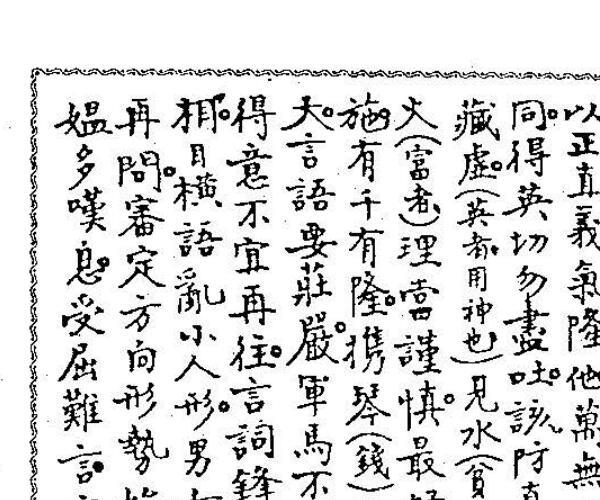 以正直義氣隆他萬無
同。得英切勿盡吐。該防真
藏虛。(英者用神也)見水(貧
火(富者)理當謹慎。最
施。有千有隆。携琴(錢)
大。言語要莊嚴。軍馬不
得意不宜再往。言詞鋒
相。目橫語亂小人形。男
再問。審定方向形勢
媪多嘆息。受屈難言。